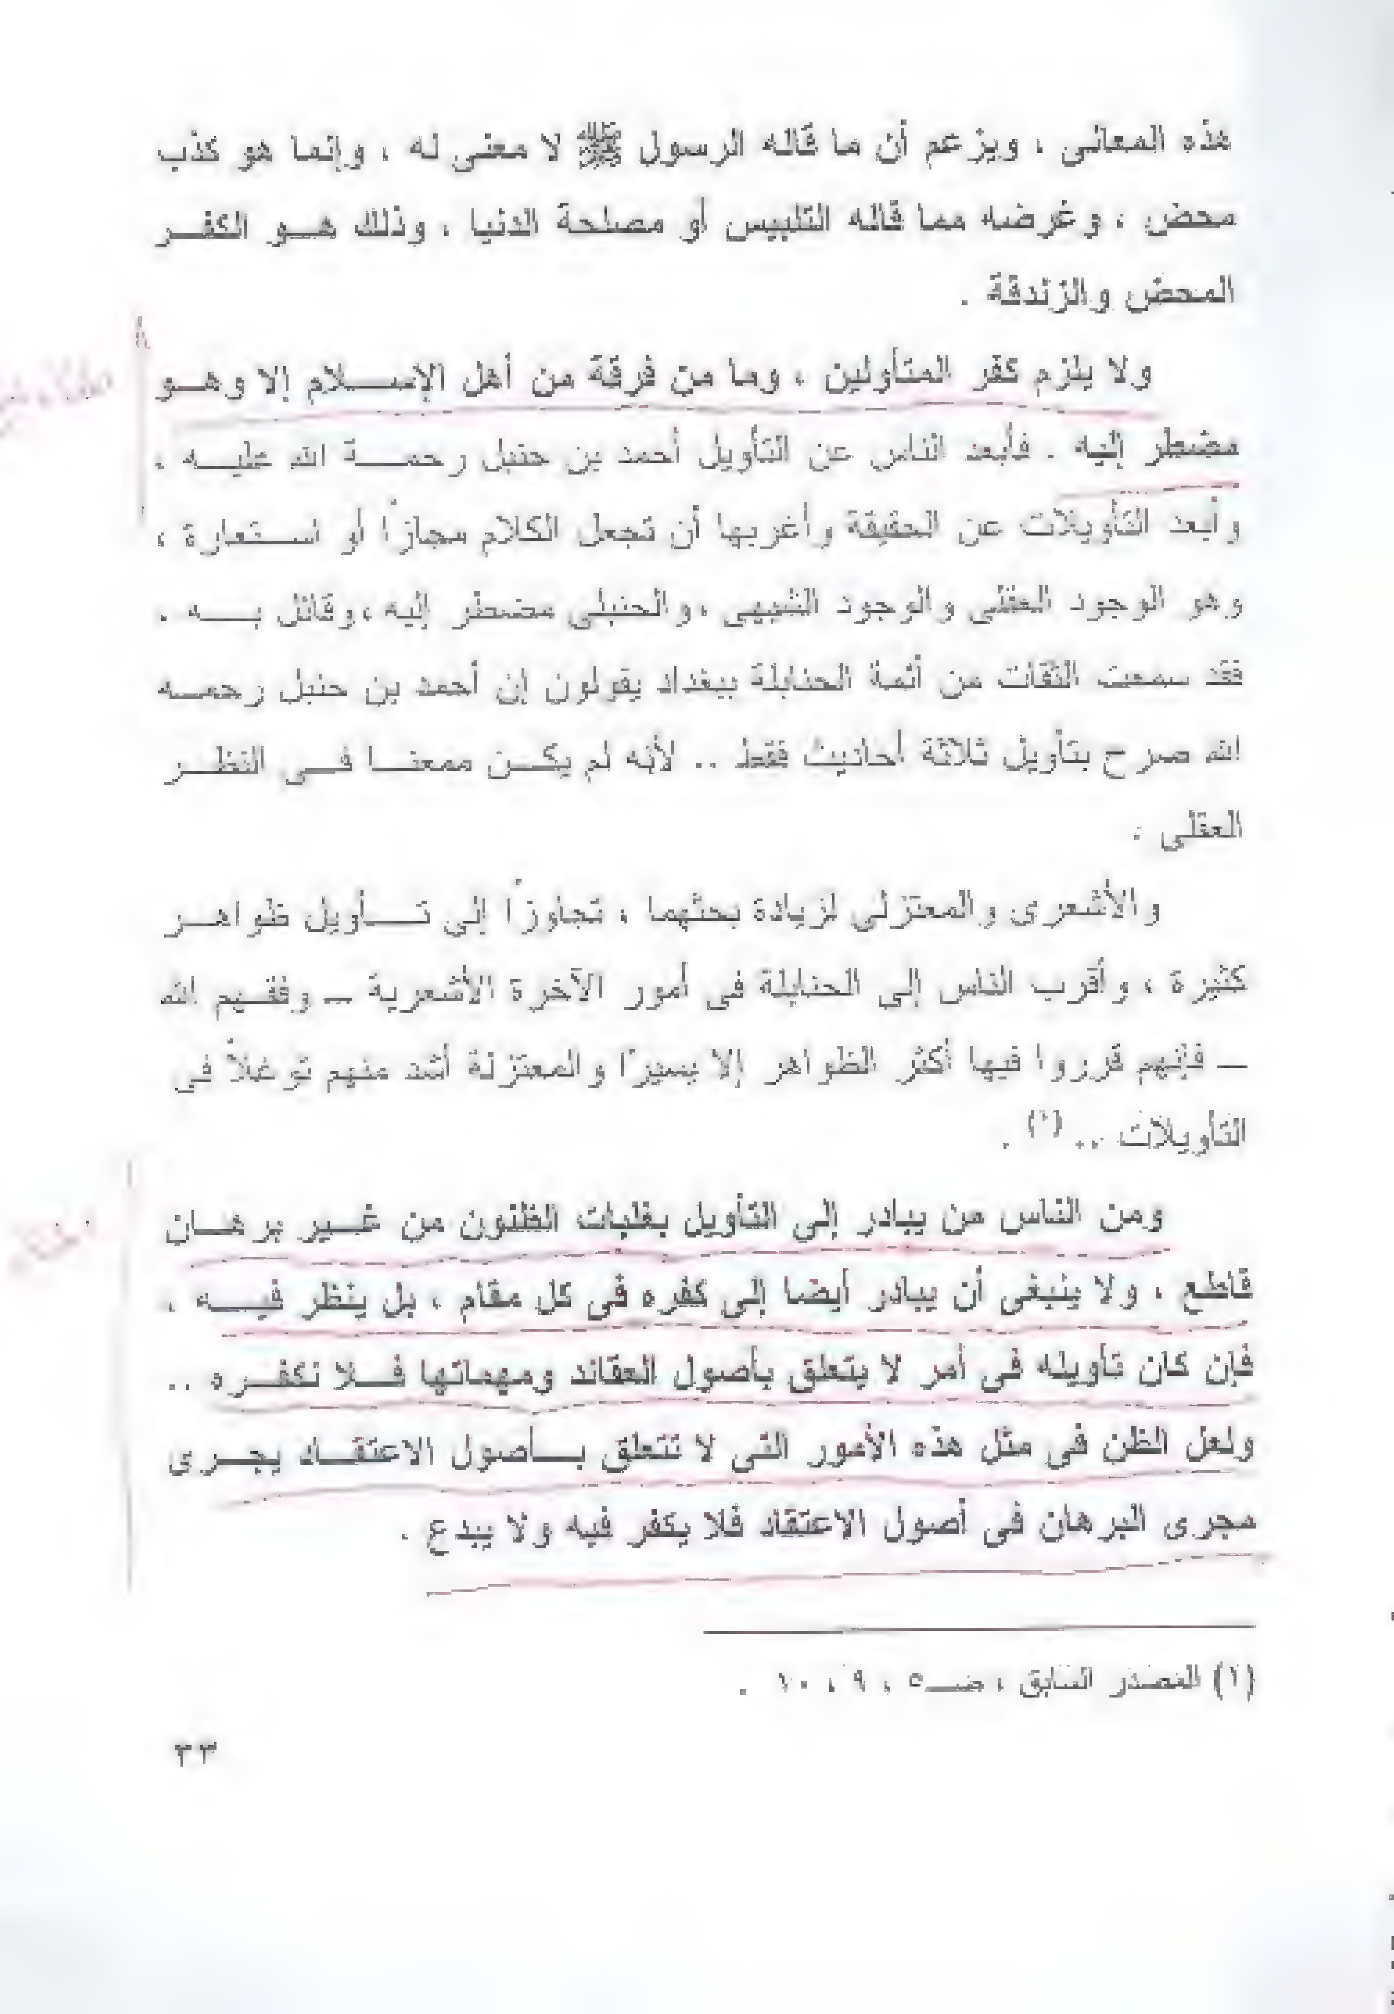 هذه المعانى ، ويزعم أن ما قاله الرسول ﷺ لا معنى له ، وإنما هو كذب
محض ، وغرضه مما قاله التلبيس أو مصلحة الدنيا ، وذلك هو الكفر
المحض والزندقة .
ولا يلزم كفر المتأولين ، وما من فرقة من أهل الإسلام إلا وهو
مضطر إليه . فأبعد الناس عن التأويل أحمد بن حنبل رحمة الله عليه ،
وأبعد التأويلات عن الحقيقة وأغربها أن تجعل الكلام مجازاً أو استعارة ،
وهو الوجود العقلى والوجود الشبهى ، والحنبلى مضطر إليه ، وقائل به .
فقد سمعت الثقات من أئمة الحنابلة ببغداد يقولون إن أحمد بن حنبل رحمه
الله صرح بتأويل ثلاثة أحاديث فقط .. لأنه لم يكن ممعنا فى النظر
العقلى .
والأشعرى والمعتزلى لزيادة بحثهما ، تجاوزاً إلى تأويل ظواهر
كثيرة ، وأقرب الناس إلى الحنابلة فى أمور الآخرة الأشعرية – وفقهم الله
– فإنهم قرروا فيها أكثر الظواهر إلا يسيرًا والمعتزلة أشد منهم توغلاً فى
التأويلات .. (١) .
ومن الناس من يبادر إلى التأويل بغلبات الظنون من غير برهان
قاطع ، ولا ينبغى أن يبادر أيضا إلى كفره فى كل مقام ، بل ينظر فيه .
فإن كان تأويله فى أمر لا يتعلق بأصول العقائد ومهماتها فلا نكفره ..
ولعل الظن فى مثل هذه الأمور التى لا تتعلق بأصول الاعتقاد يجرى
مجرى البرهان فى أصول الاعتقاد فلا يكفر فيه ولا يبدع .
(١) المصدر السابق ، صـ٥ ، ٩ ، ١٠ .
٣٣